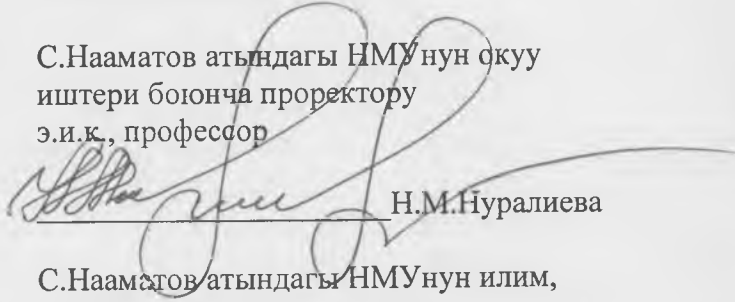 С.Нааматов атындагы НМУнун окуу
иштери боюнча проректору
э.и.к., профессор
Н.М.Нуралиева
С.Нааматов атындагы НМУнун илим,